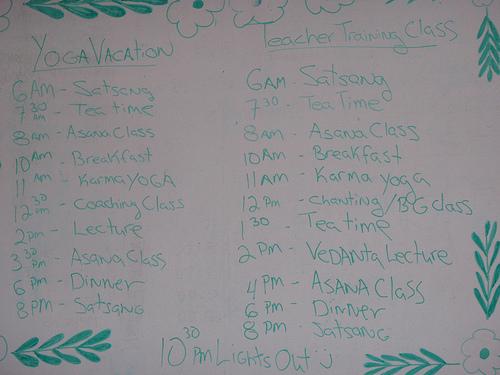 YOGA VACATION
6AM - Satsang
7 30 AM - Tea time
8AM - Asana Class
10 AM - Breakfast
11 AM - Karma YOGA
12 30 pm - Coaching Class
2pm - Lecture
3 30 Pm - Asana Class
6 Pm - Dinner
8PM - Satsang
Teacher Training Class
6AM - Satsang
7 30 - Tea Time
8AM - Asana Class
10AM - Breakfast
11 AM - Karma yoga
12 PM - chanting/BG class
1 30 - Tea time
2 PM - VEDANTA Lecture
4 PM - ASANA Class
6 PM - Dinner
8 PM - Satsang
10 30 PM Lights Out :)